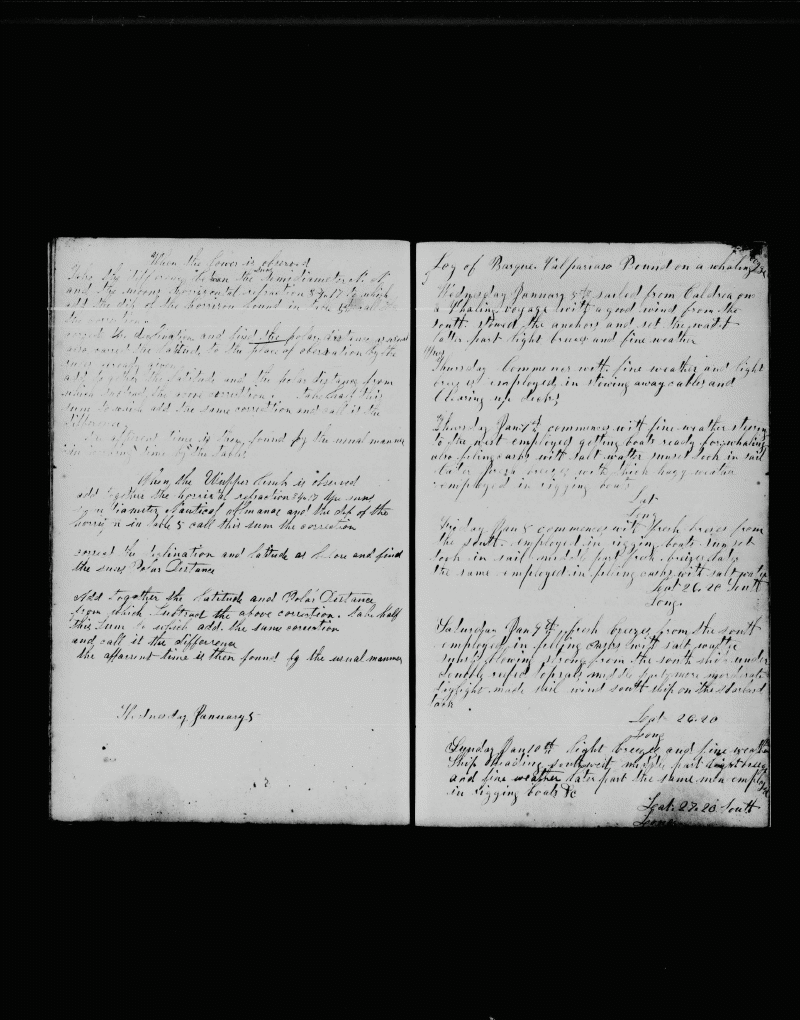 When the lower is observed
Take the difference between the suns Semidiameter
and the horizontal refraction & 17 to which
add the dip of the horrison found in
the correction
correct the declination and find the polar distance as usual
also correct the latitude to the place of observation by the
rules already given
add together the latitude and the polar distance from
which subtract the above correction. take half this
sum to which add the same correction and call it the
difference
the apparent time is then found by the usual manner
time by the table
When the Uupper limb is observed
add together the horrizon refraction & 17 the suns
Semi diameter Nautical Almanac and the dip of the
horrizon in table 5 call this sum the correction
correct the declination and latitude as before and find
the suns Polar Distance
Add together the Latitude and Polar Distance
from which subtract the above correction. take half
this sum to which add the same correction
and call it the difference
the apparent time is then found by the usual manner
Wednesday January 5
Log of Barque Valparaiso Bound on a whaling
Wednesday January 5th sailed from Caldrea on
a Whaling voyage with a good wind from the
south stowed the anchors and set the watch
latter part light breezes and fine weather
Thursday Commences with fine weather and light
breezes employed in stowing away cables and
Clearing up decks
Thursday Jan 7th commences with fine weather steering
to the west employed getting boats ready for whaling
also filling casks with salt watter sunset took in sail
later part breezes with thick hazy weather
employed in rigging boats
Lat
Long
Friday Jan 8 commences with fresh breezes from
the south employed in rigging boats sunset
took in sail middle part fresh breezes
the same employed in filling casks with salt water
Lat 26.20 South
Long.
Saturday Jan 9th fresh breezes from the south
employed in filling casks with salt watter
sunset blowing strong from the south ship under
double reefed topsails middle part more moderate
daylight made sail wind south ship on the starbord
tack
Lat 26.20
Long
Sunday Jan 10th light breezes and fine weather
Ship heading southwest middle part light breezes
and fine weather later part the same men employed
in rigging boats &c
Lat. 27.20 South
Long.